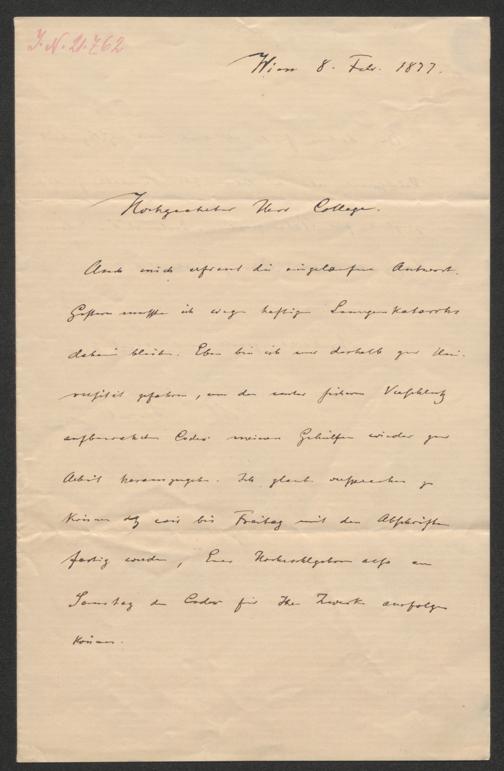 J. N. 21.762
Wien 8. Febr. 1877.
Hochgeehrter Herr College.
Auch mich erfreut die eingelaufene Antwort.
Gestern mußte ich wegen heftigen Lungenkatarrhs
daheim bleiben. Eben bin ich nur deshalb zur Uni-
versität gefahren, um den unter sicherem Verschluß
aufbewahrten Codex meinen Gehülfen wieder zur
Arbeit herauszugeben. Ich glaube versprechen zu
können daß wir bis Freitag mit den Abschriften
fertig werden, Euer Hochwohlgeboren also am
Samstag den Codex für Ihre Zwecke ausfolgen
können.